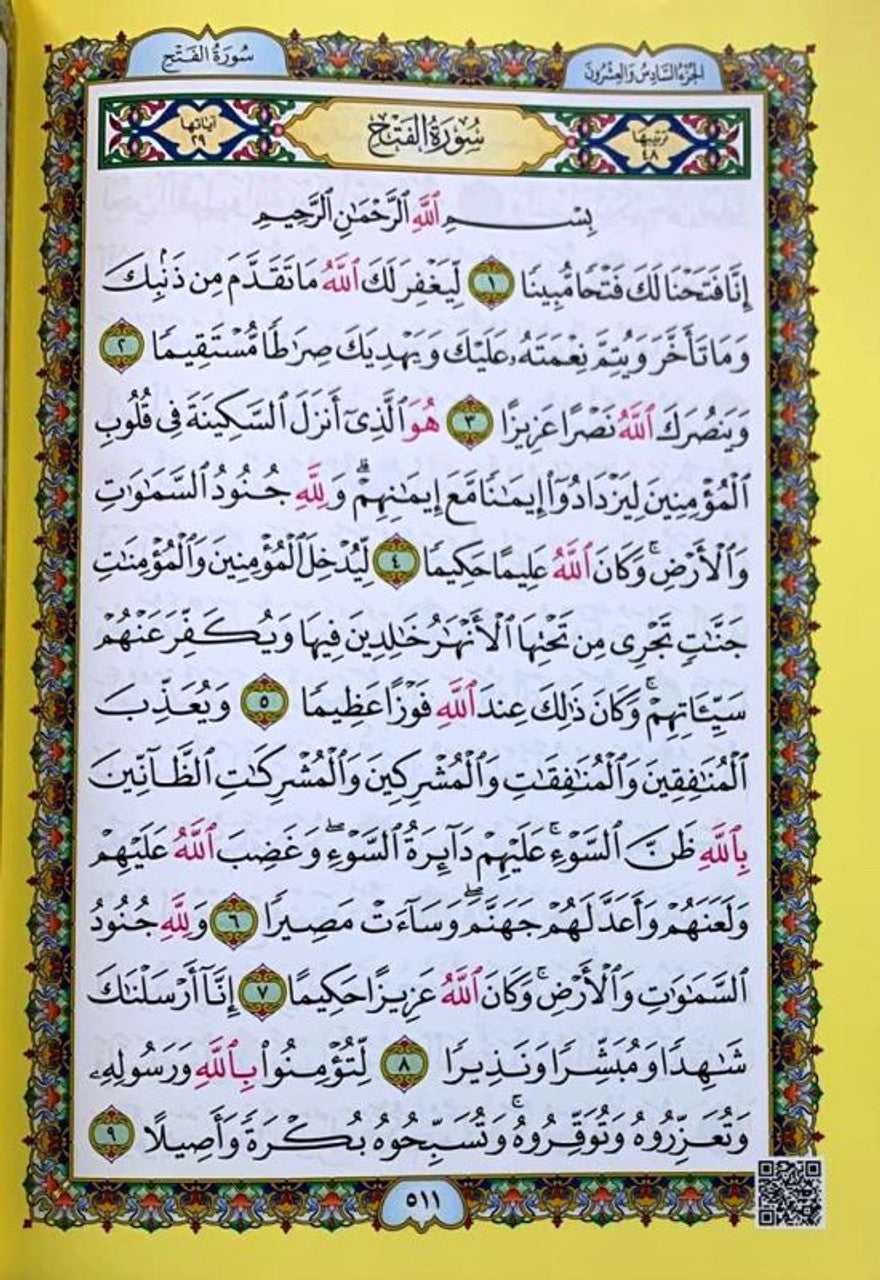 سُورَةُ الفَتْحِ
الجُزءُ السَّادِسُ وَالعِشْرُونَ
آياتها ٢٩
سُورَةُ الفَتْحِ
ترتيبها ٤٨
بِسْمِ ٱللَّهِ ٱلرَّحْمَٰنِ ٱلرَّحِيمِ
إِنَّا فَتَحْنَا لَكَ فَتْحًا مُّبِينًا ١ لِّيَغْفِرَ لَكَ ٱللَّهُ مَا تَقَدَّمَ مِن ذَنۢبِكَ
وَمَا تَأَخَّرَ وَيُتِمَّ نِعْمَتَهُۥ عَلَيْكَ وَيَهْدِيَكَ صِرَٰطًا مُّسْتَقِيمًا ٢
وَيَنصُرَكَ ٱللَّهُ نَصْرًا عَزِيزًا ٣ هُوَ ٱلَّذِىٓ أَنزَلَ ٱلسَّكِينَةَ فِى قُلُوبِ
ٱلْمُؤْمِنِينَ لِيَزْدَادُوٓا۟ إِيمَٰنًا مَّعَ إِيمَٰنِهِمْ ۗ وَلِلَّهِ جُنُودُ ٱلسَّمَٰوَٰتِ
وَٱلْأَرْضِ ۚ وَكَانَ ٱللَّهُ عَلِيمًا حَكِيمًا ٤ لِّيُدْخِلَ ٱلْمُؤْمِنِينَ وَٱلْمُؤْمِنَٰتِ
جَنَّٰتٍ تَجْرِى مِن تَحْتِهَا ٱلْأَنْهَٰرُ خَٰلِدِينَ فِيهَا وَيُكَفِّرَ عَنْهُمْ
سَيِّـَٔاتِهِمْ ۚ وَكَانَ ذَٰلِكَ عِندَ ٱللَّهِ فَوْزًا عَظِيمًا ٥ وَيُعَذِّبَ
ٱلْمُنَٰفِقِينَ وَٱلْمُنَٰفِقَٰتِ وَٱلْمُشْرِكِينَ وَٱلْمُشْرِكَٰتِ ٱلظَّآنِّينَ
بِٱللَّهِ ظَنَّ ٱلسَّوْءِ ۚ عَلَيْهِمْ دَآئِرَةُ ٱلسَّوْءِ ۖ وَغَضِبَ ٱللَّهُ عَلَيْهِمْ
وَلَعَنَهُمْ وَأَعَدَّ لَهُمْ جَهَنَّمَ ۖ وَسَآءَتْ مَصِيرًا ٦ وَلِلَّهِ جُنُودُ
ٱلسَّمَٰوَٰتِ وَٱلْأَرْضِ ۚ وَكَانَ ٱللَّهُ عَزِيزًا حَكِيمًا ٧ إِنَّآ أَرْسَلْنَٰكَ
شَٰهِدًا وَمُبَشِّرًا وَنَذِيرًا ٨ لِّتُؤْمِنُوا۟ بِٱللَّهِ وَرَسُولِهِۦ
وَتُعَزِّرُوهُ وَتُوَقِّرُوهُ ۚ وَتُسَبِّحُوهُ بُكْرَةً وَأَصِيلًا ٩
٥١١